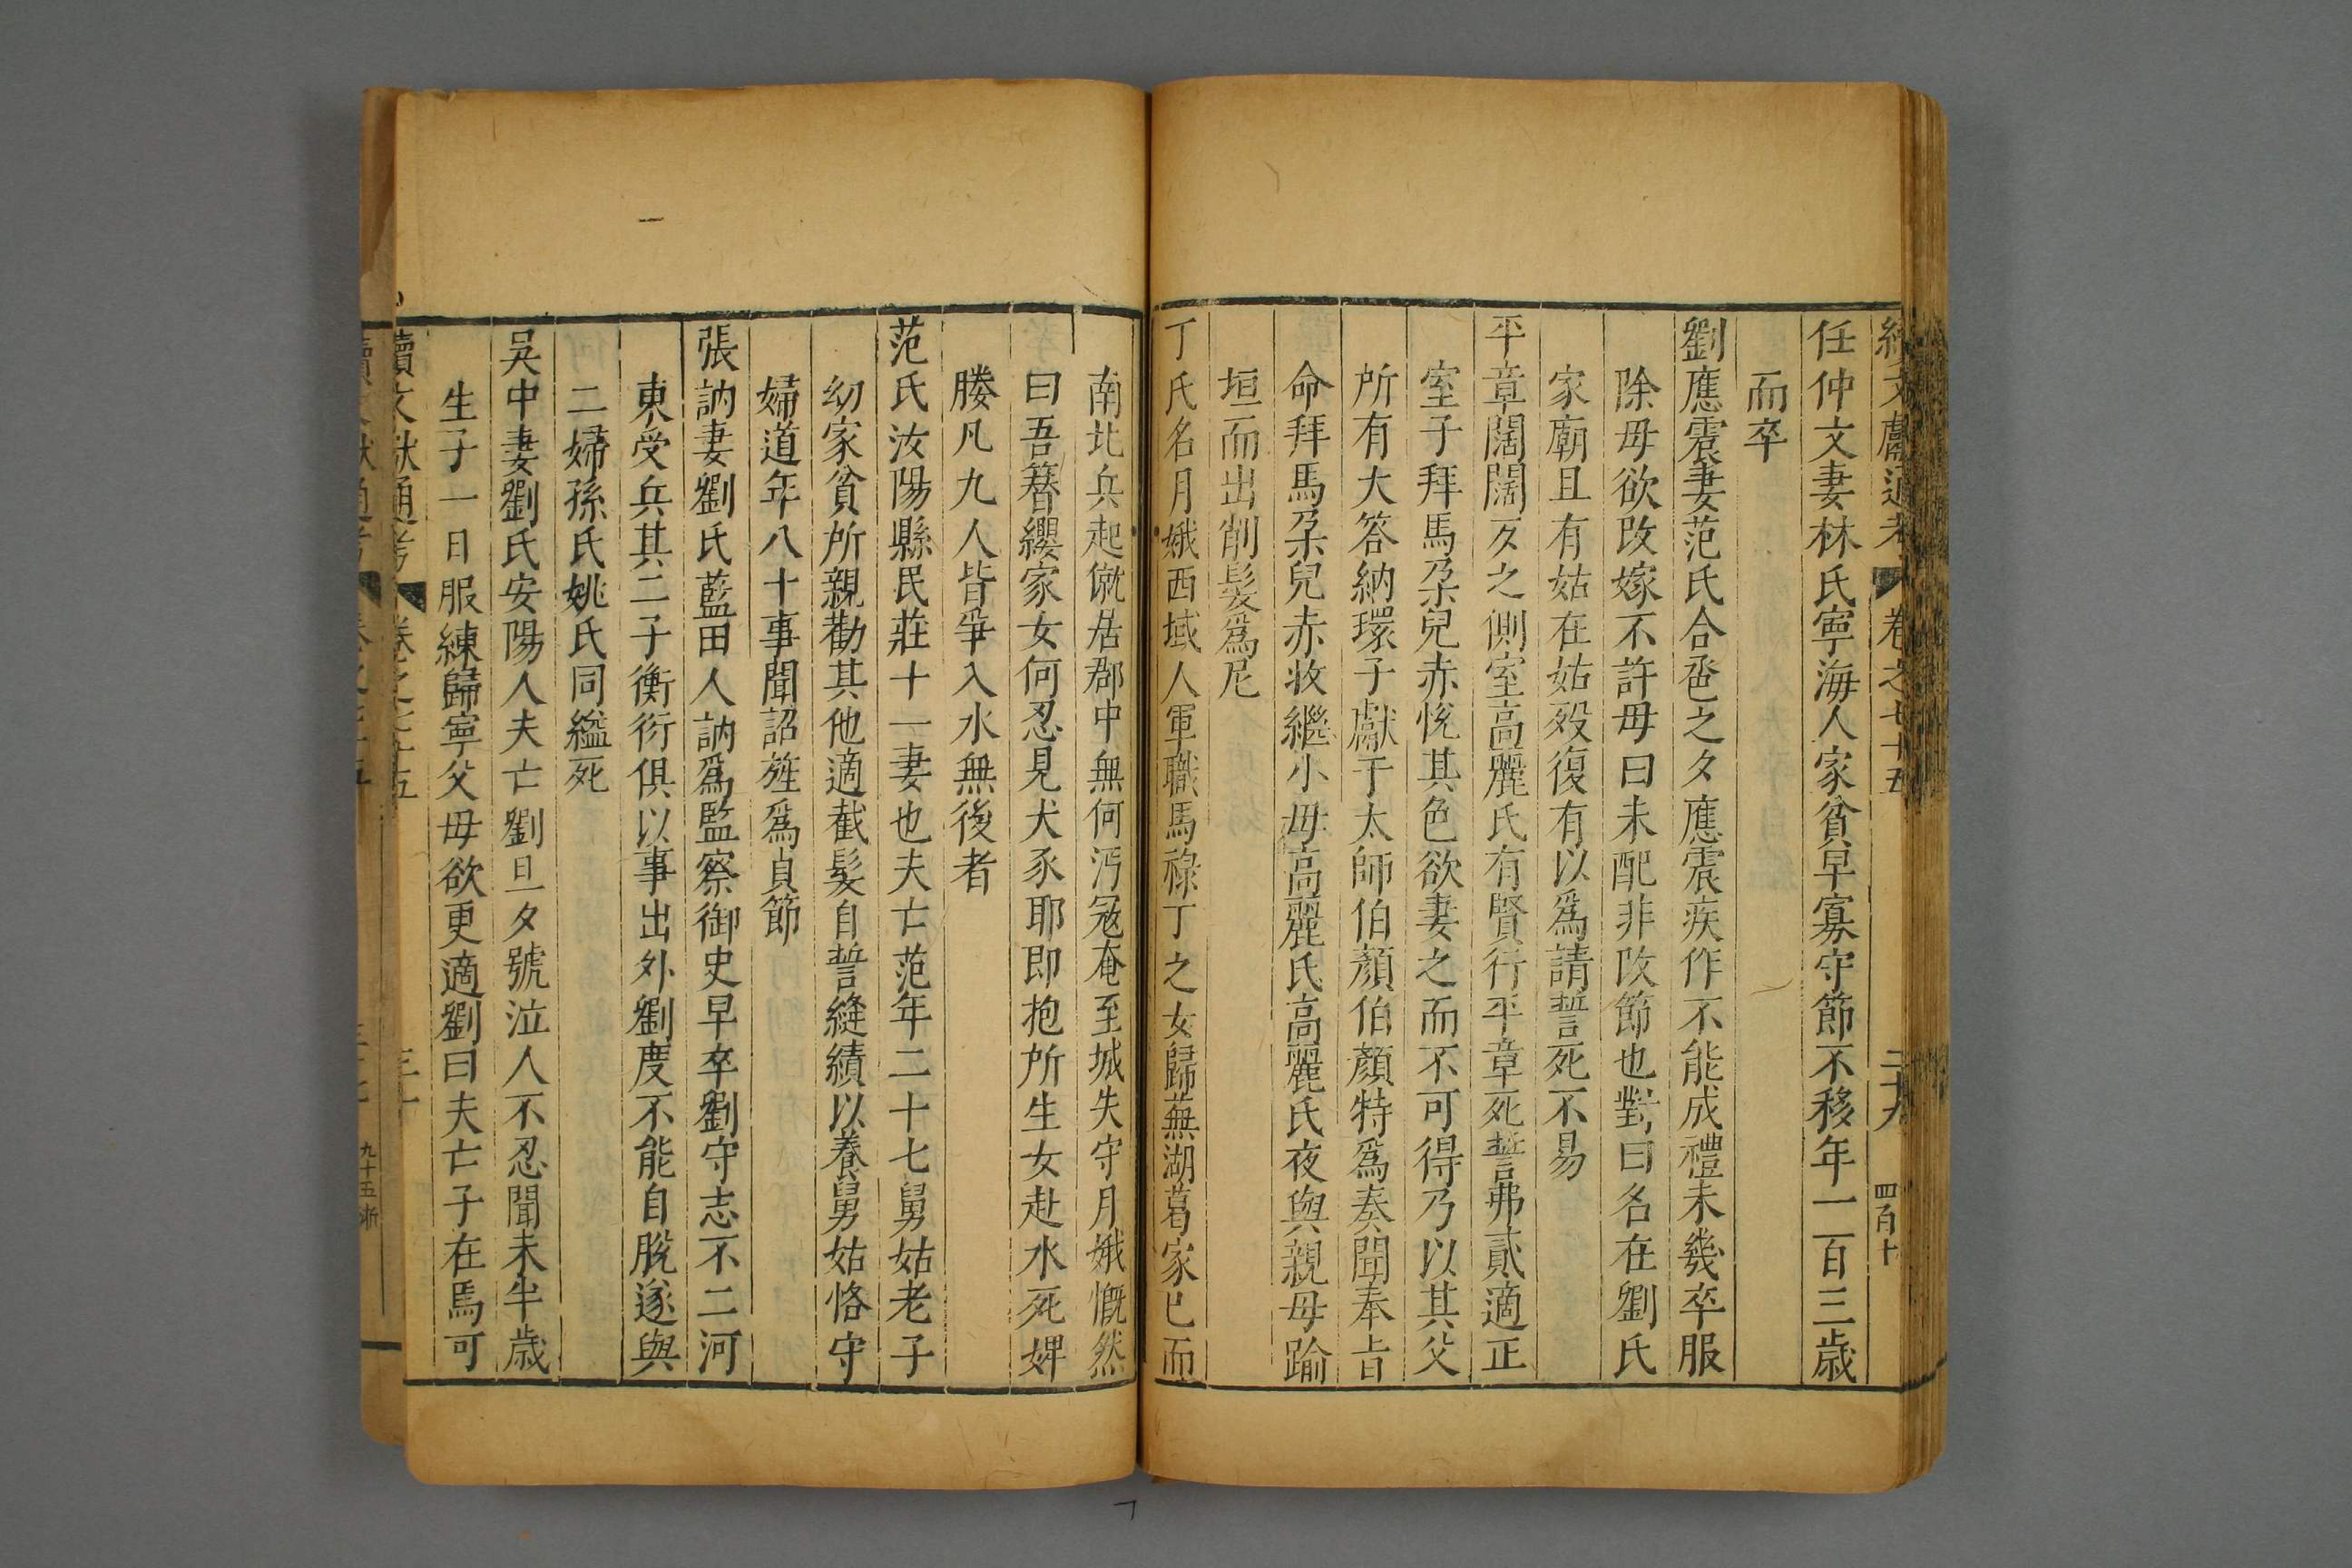 續文獻通考 卷之七十五 二十九 四百十
任仲文妻林氏寧海人家貧早寡守節不移年一百三歲
而卒
劉應震妻范氏合巹之夕應震疾作不能成禮未幾卒服
除毋欲改嫁不許毋曰未配非改節也對曰名在劉氏
家廟且有姑在姑歿復有以爲請誓死不易
平章闊闊歹之側室高麗氏有賢行平章死誓弗貳適正
室子拜馬朶兒赤悅其色欲妻之而不可得乃以其父
所有大答納環子獻于太師伯顏伯顏特爲奏聞奉旨
命拜馬朶兒赤收繼小毋高麗氏高麗氏夜與親毋踰
垣而出削髮爲尼
丁氏名月娥西域人軍職馬祿丁之女歸蕪湖葛家已而
南北兵起僦居郡中無何沔寇奄至城失守月娥慨然
曰吾簪纓家女何忍見犬豕耶即抱所生女赴水死婢
媵凡九人皆爭入水無後者
范氏汝陽縣民莊十一妻也夫亡范年二十七舅姑老子
幼家貧所親勸其他適截髮自誓縫績以養舅姑恪守
婦道年八十事聞詔旌爲貞節
張訥妻劉氏藍田人訥爲監察御史早卒劉守志不二河
東受兵其二子衡衍俱以事出外劉度不能自脫遂與
二婦孫氏姚氏同縊死
吳中妻劉氏安陽人夫亡劉旦夕號泣人不忍聞未半歲
生子一日服練歸寧父毋欲更適劉曰夫亡子在焉可
續文獻通考 卷之七十五 三十
九十五浙